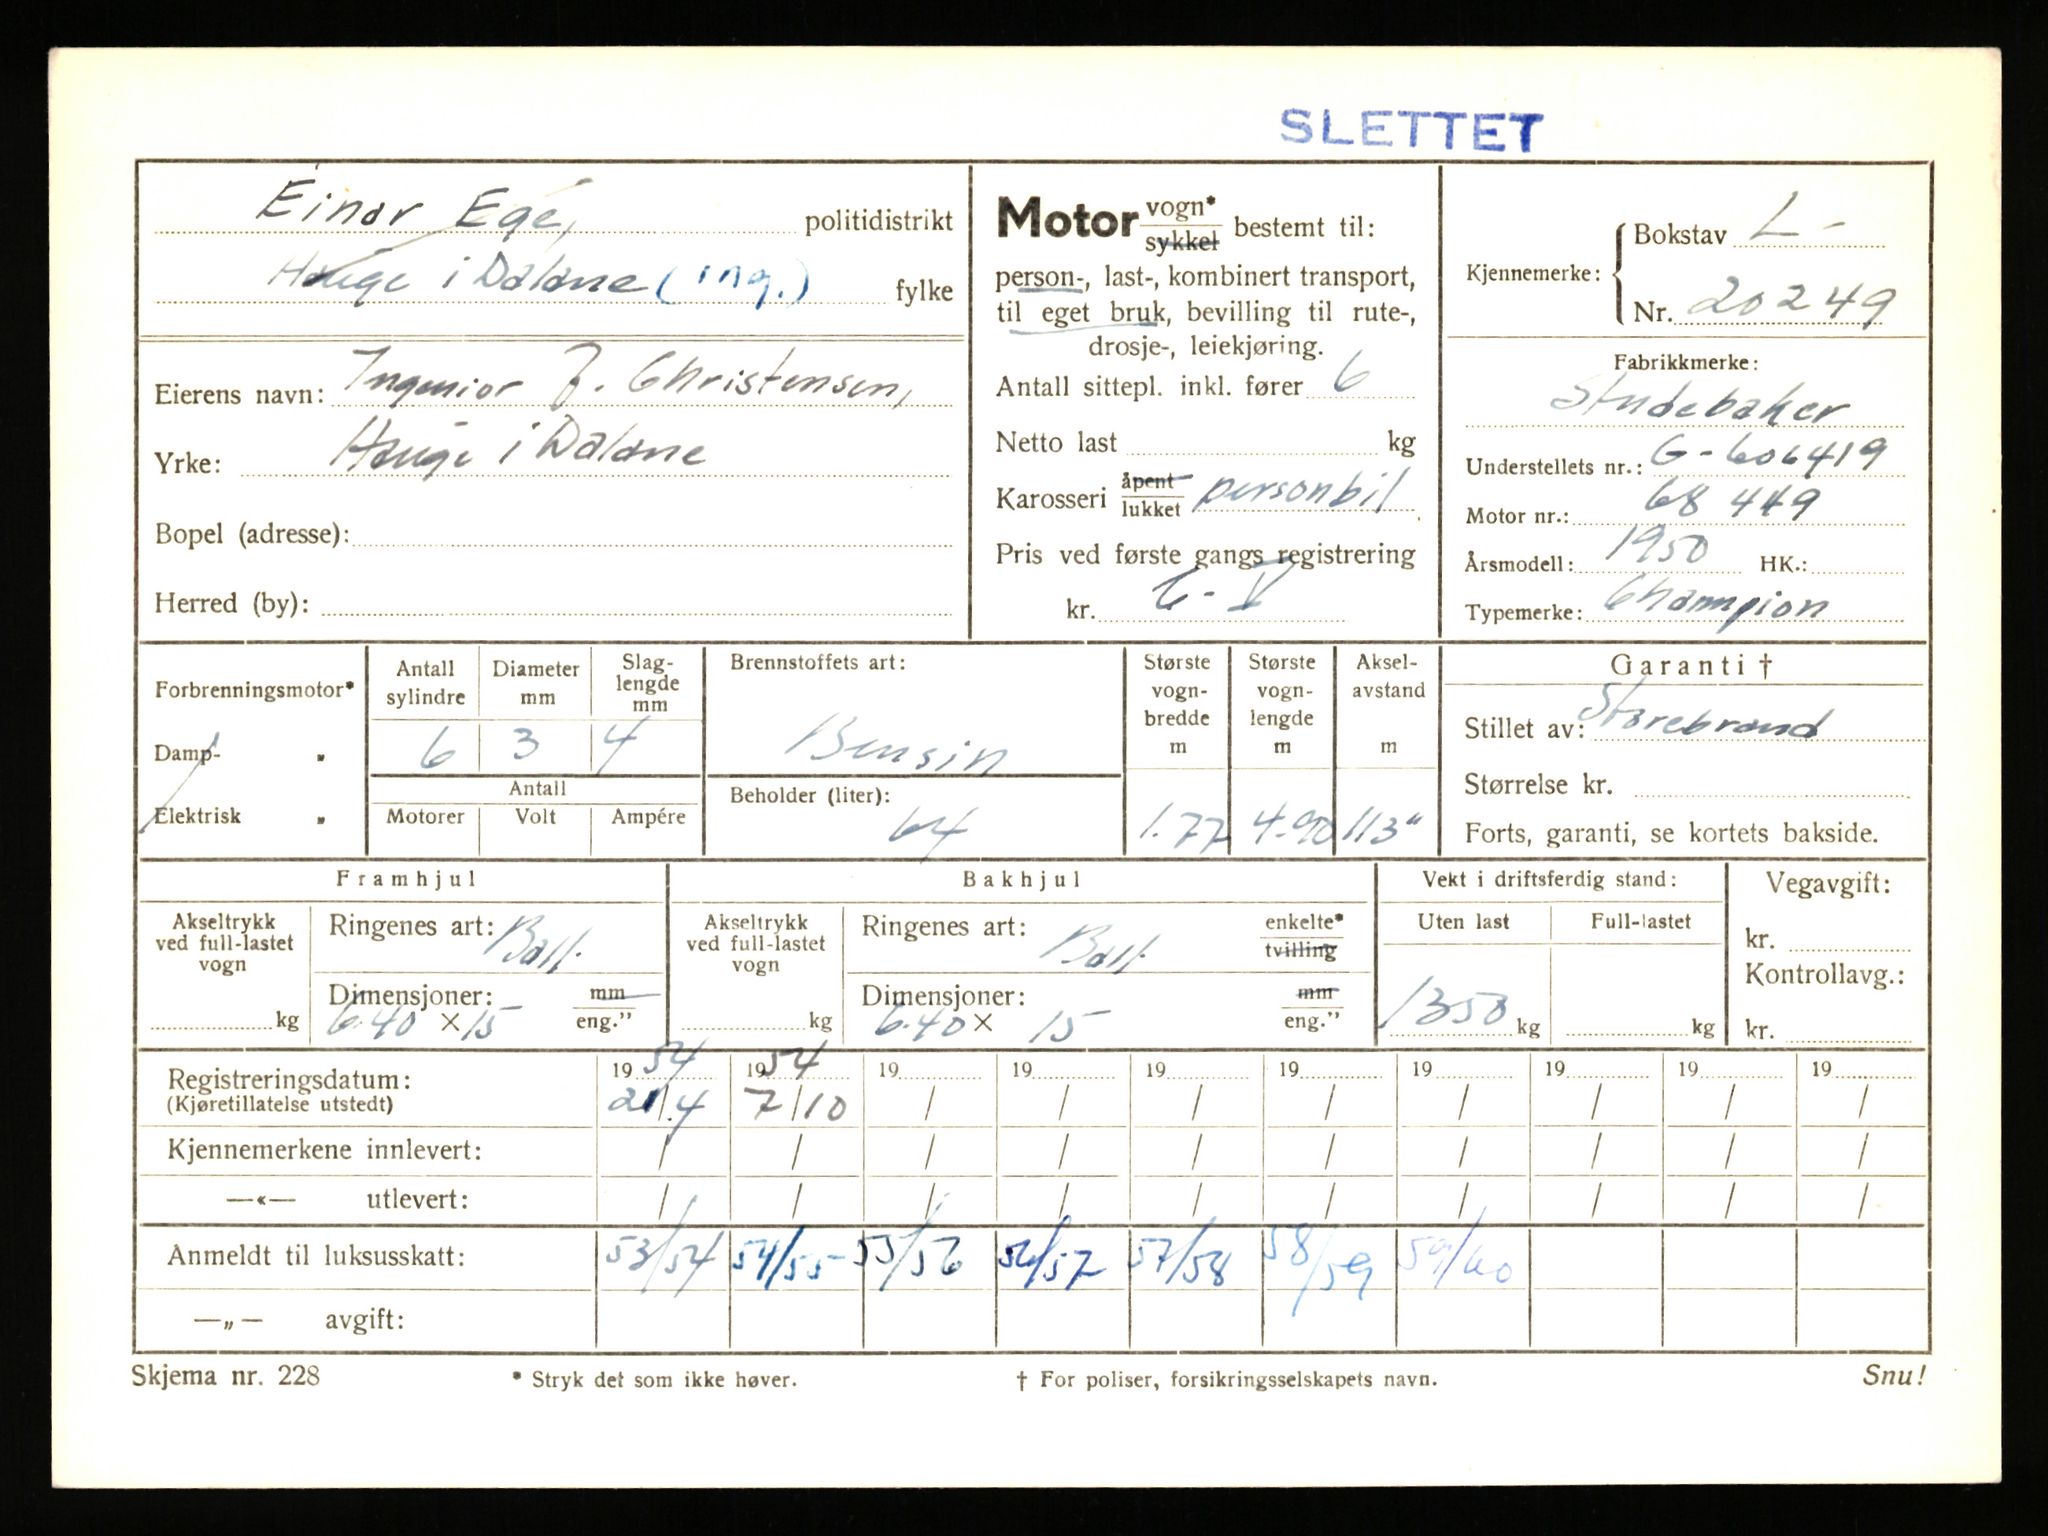 SLETTET
Einar Ege, politidistrikt
Hauge i Dalane (ing.) fylke
Eierens navn: Ingeniør J. Christensen,
Yrke: Hauge i Dalane
Bopel (adresse):
Herred (by):
Motor vogn* sykkel bestemt til:
person-, last-, kombinert transport,
til eget bruk, bevilling til rute-,
drosje-, leiekjøring.
Antall sittepl. inkl. fører 6
Netto last kg
Karosseri åpent lukket personbil
Pris ved første gangs registrering
kr.
Kjennemerke: Bokstav L-
Nr. 20249
Fabrikkmerke:
Studebaker
Understellets nr.: G-606419
Motor nr.: 68449
Årsmodell: 1950 HK.:
Typemerke: Champion
Forbrenningsmotor*
Damp- "
Elektrisk "
Antall sylindre 6
Diameter mm 3
Slag-lengde mm 4
Antall
Motorer Volt Ampére
Brennstoffets art:
Bensin
Beholder (liter):
64
Største vogn-bredde m 1.77
Største vogn-lengde m 4.90
Aksel-avstand m 113"
Garanti †
Stillet av: Storebrand
Størrelse kr.
Forts, garanti, se kortets bakside.
Framhjul
Akseltrykk ved full-lastet vogn kg
Ringenes art: Ball.
Dimensjoner: mm eng."
6.40 × 15
Bakhjul
Akseltrykk ved full-lastet vogn kg
Ringenes art: Ball. enkelte* tvilling
Dimensjoner: mm eng."
6.40 × 15
Vekt i driftsferdig stand:
Uten last Full-lastet
1350 kg kg
Vegavgift:
kr.
Kontrollavg.:
kr.
Registreringsdatum: 1954 1954 19 19 19 19 19 19 19 19
(Kjøretillatelse utstedt) 21/4 7/10 / / / / / / / /
Kjennemerkene innlevert: / / / / / / / / / /
—«— utlevert: / / / / / / / / / /
Anmeldt til luksusskatt: 53/54 54/55 55/56 56/57 57/58 58/59 59/60
—„— avgift:
Skjema nr. 228 * Stryk det som ikke høver. † For poliser, forsikringsselskapets navn. Snu!